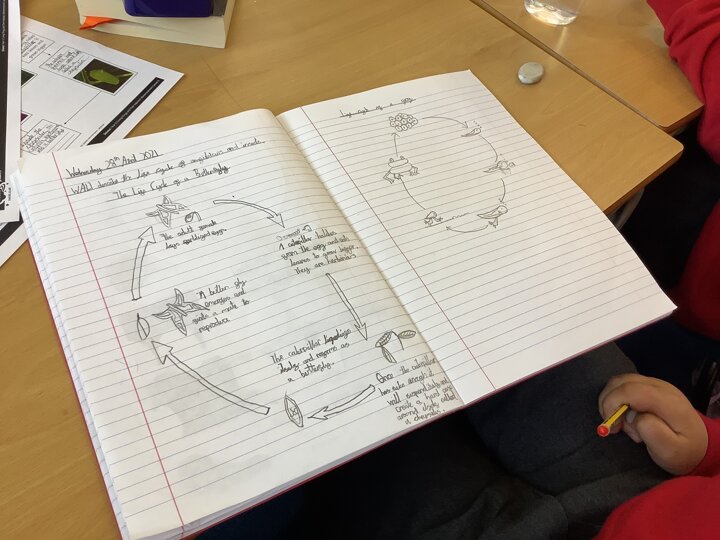 Wednesday 28th April 2021
WALI describe the life cycle of amphibians and insects.
The Life Cycle of a Butterfly
The adult female
lays fertilized eggs.
A caterpillar hatches
from the egg and eats
leaves to grow bigger.
They are herbivores
Once the caterpillar
has eaten enough it
will
create a hard case
around itself called
a chrysalis.
The caterpillar
itself and reforms as
a butterfly.
A butterfly
emerges and
finds a mate to
reproduce
Life cycle of a frog